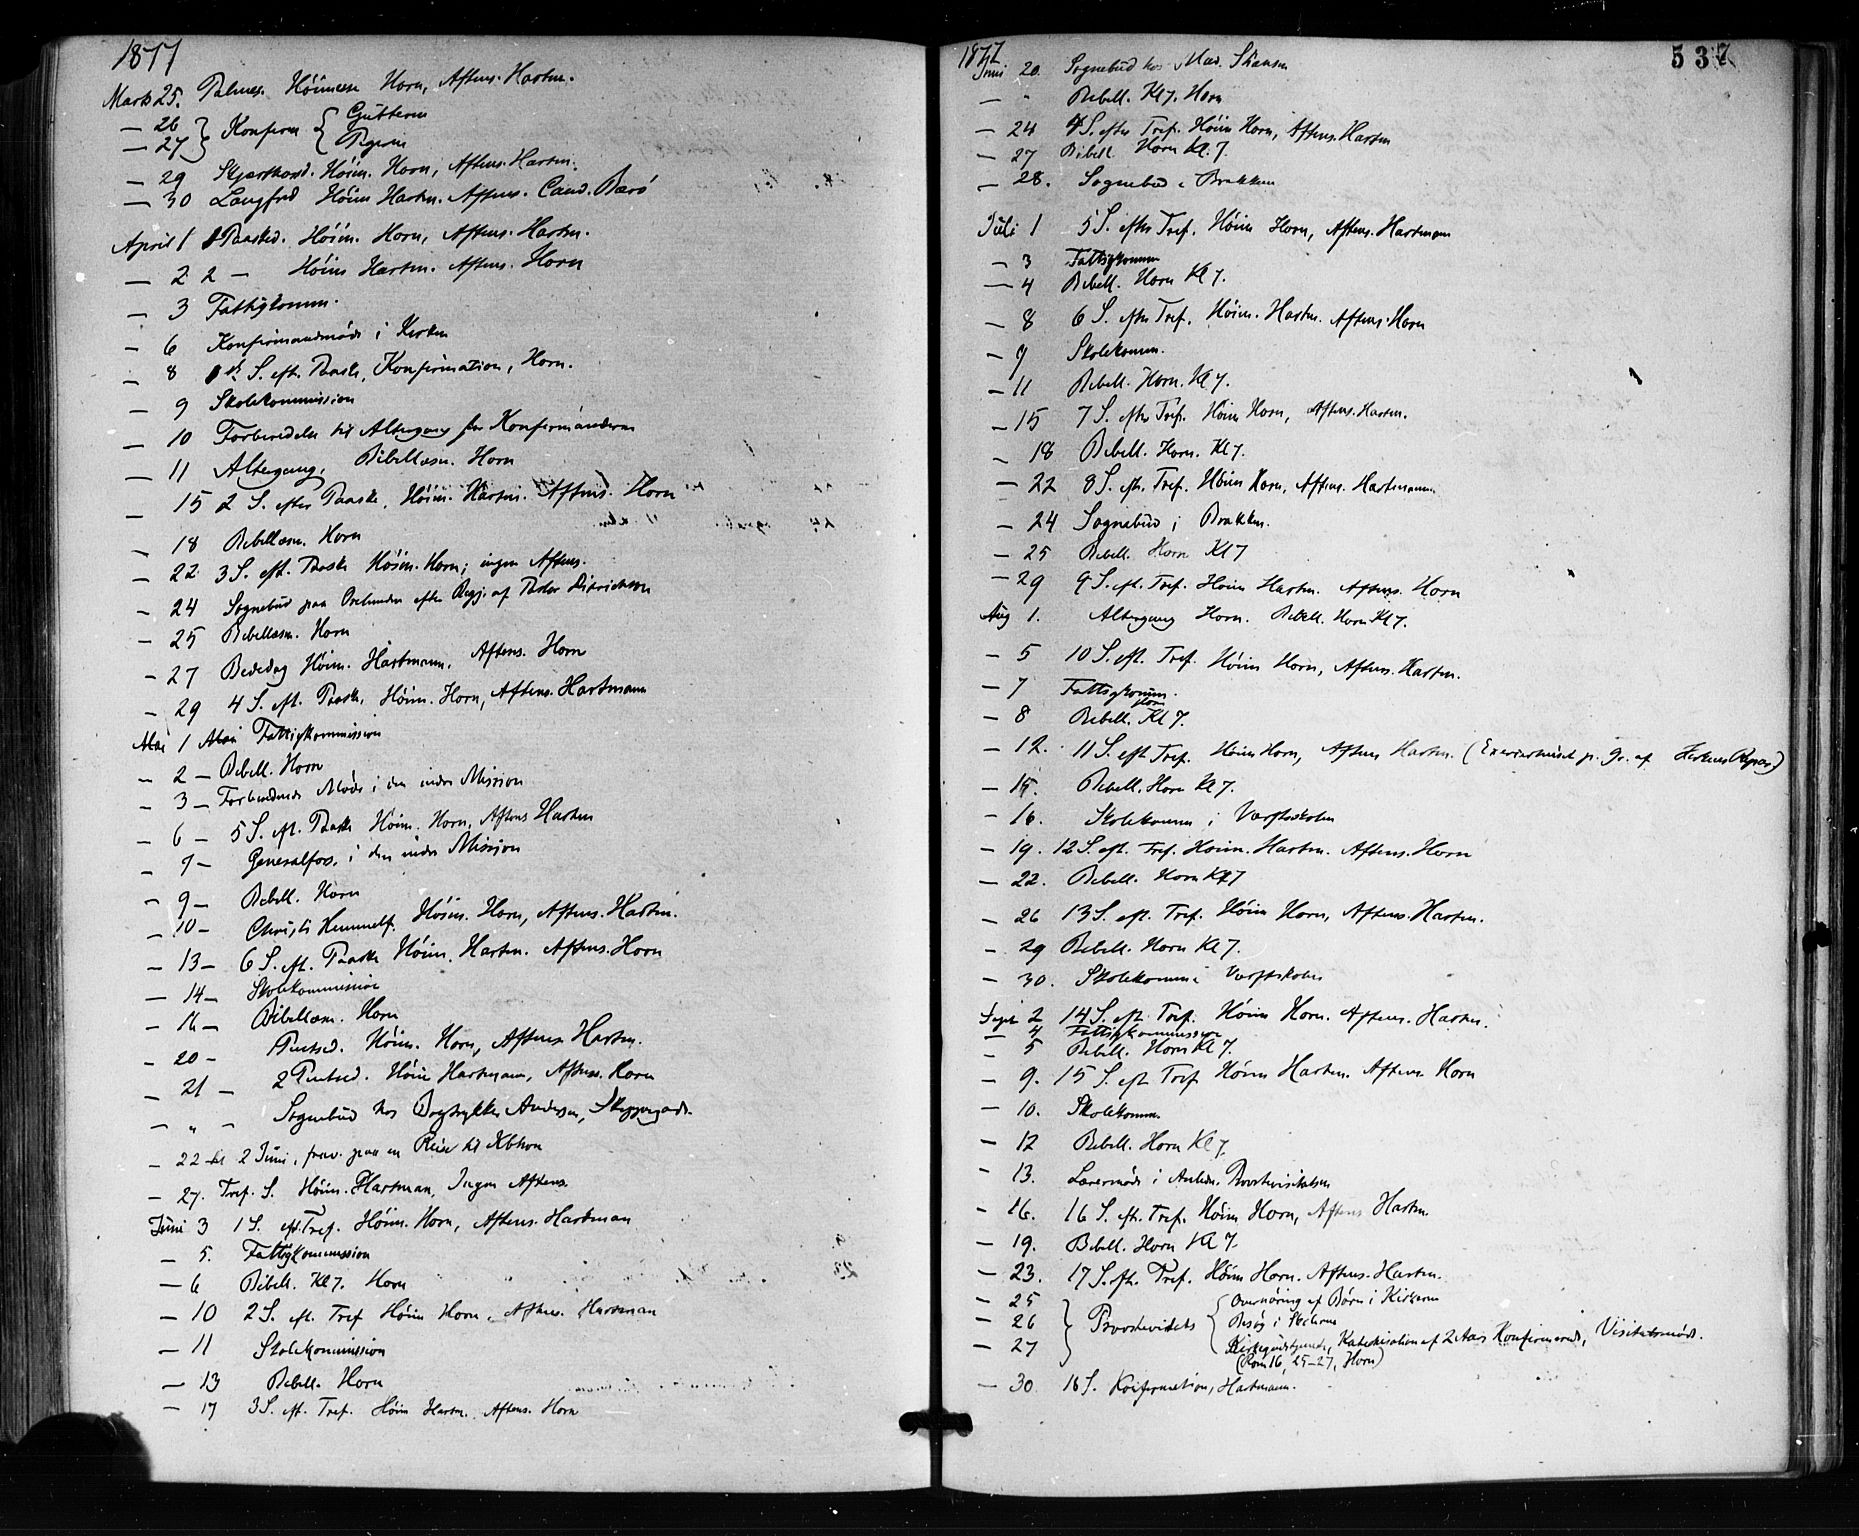 1877
Marts 25. Palmes. Höimesse Horn, Aftens. Hartm.
— 26 } Konfirm { Gutterne
— 27 } Pigerne
— 29 Skjærthorsd. Höim. Horn, Aftens. Hartm.
— 30 Langfred Höim Hartm. Aftens. Cand. Barö
April 1 1 Paasked. Höim. Horn, Aftens. Hartm.
— 2 2 — Höim Hartm. Aftens. Horn
— 3 Fattigkomm.
— 6 Konfirmandmöde i Kirken
— 8 1st S. eft. Paaske, Konfirmation, Horn.
— 9 Skolekommission
— 10 Forberedelse til Altergang for Konfirmanderne
— 11 Altergang, Bibellæsn. Horn
— 15 2 S. efter Paaske, Höim. Hartm. Aftens. Horn
— 18 Bibellæsn. Horn
— 22 3 S. eft. Paaske Höim. Horn; ingen Aftens.
— 24 Sognebud paa efter Begj. af Pastor
— 25 Bibellæsn. Horn
— 27 Bededag Höim. Hartmann, Aftens. Horn
— 29 4 S. eft. Paaske, Höim. Horn, Aftens. Hartmann
Mai 1 Fattigkommission
— 2 — Bibell. Horn
— 3 — Forberedende Möde i den indre Mission
— 6 — 5 S. eft. Paaske Höim. Horn, Aftens Hartm
— 7 — Generalfors. i den indre Mission
— 9 — Bibell. Horn
— 10 — Christi Himmelf. Höim. Horn, Aftens. Hartm.
— 13 — 6 S. eft. Paaske Höim. Hartm. Aftens. Horn
— 14 — Skolekommission
— 16 — Bibellæsn. Horn
— 20 — Pintsed. Höim. Horn, Aftens. Hartm.
— 21 — 2 Pintsed. Höim Hartmann, Aftens. Horn
— " — Sognebud hos Bogtrykker Andersen,
— 22 til 2 Juni, frav. paa en Reise til Kbhvn
— 27. Tref. S. Höim. Hartman, Ingen Aftens.
Juni 3 1 S. eft. Tref. Höim. Horn, Aftens. Hartman
— 5. Fattigkommission
— 6 Bibell. Kl 7. Horn
— 10 2 S. eft. Tref Höim Horn, Aftens. Hartman
— 11 Skolekommission
— 13 Bibell. Horn
— 17 3 S. eft. Tref. Höim Hartm. Aftens. Horn
537
1877
Juni 20. Sognebud hos Mad.
— " Bibell. Kl 7. Horn
— 24 4 S. efter Tref. Höim Horn, Aftens. Hartm
— 27 Bibell. Horn Kl. 7.
— 28. Sognebud i Brakken
Juli 1 5 S. efter Tref. Höim Horn, Aftens. Hartmann
— 3 Fattigkomm
— 4 Bibell. Horn Kl 7.
— 8 6 S. efter Tref. Höim. Hartm. Aftens. Horn
— 9 Skolekomm.
— 11 Bibell. Horn. Kl 7.
— 15 7 S. efter Tref. Höim Horn, Aftens. Hartm.
— 18 Bibell. Horn. Kl 7.
— 22 8 S. eft. Tref. Höim Horn, Aftens. Hartmann
— 24 Sognebud i Brakken.
— 25 Bibell. Horn Kl 7
— 29 9 S. eft. Tref. Höim Hartm. Aftens. Horn
Aug 1. Altergang Horn. Bibell. Horn Kl 7.
— 5 10 S. eft. Tref. Höim Horn, Aftens. Hartm.
— 7 Fattigkomm.
— 8 Bibell. Horn Kl 7.
— 12. 11 S. eft Tref. Höim Horn, Aftens Hartm. (Exercerhuset p. Gr. af Kirkens Repar)
— 15. Bibell. Horn Kl 7.
— 16. Skolekomm i Værftsskolen
— 19. 12 S. eft. Tref. Höim. Hartm. Aftens. Horn
— 22. Bibell. Horn Kl 7
— 26 13 S. eft. Tref. Höim Horn, Aftens. Hartm.
— 29 Bibell. Horn Kl 7.
— 30. Skolekomm i Værftskolen
Sept 2 14 S. eft. Tref. Höim Horn. Aftens. Hartm.
— 4 Fattigkommission
— 5 Bibell. Horn Kl 7.
— 9. 15 S. eft Tref Höim Hartm. Aftens Horn
— 10. Skolekomm.
— 12 Bibell. Horn Kl 7.
— 13. Lærermöde i Anledn. Provstevisitatsen
— 16. 16 S. eft. Tref. Höim Horn, Aftens Hartm.
— 19. Bibell. Horn Kl 7.
— 23. 17 S. eft. Tref. Höim Horn. Aftens. Hartm.
— 25 { Overhöring af Börn i Kirkerne
— 26 } Provstevisitats { Besög i Skolerne
— 27 Kirkegudstjeneste, Katechisation af 2 Aars Konfirmerede, Visitatsmöde.
(Rom 16, 25–27, Horn)
— 30. 18 S. Konfirmation, Hartmann.